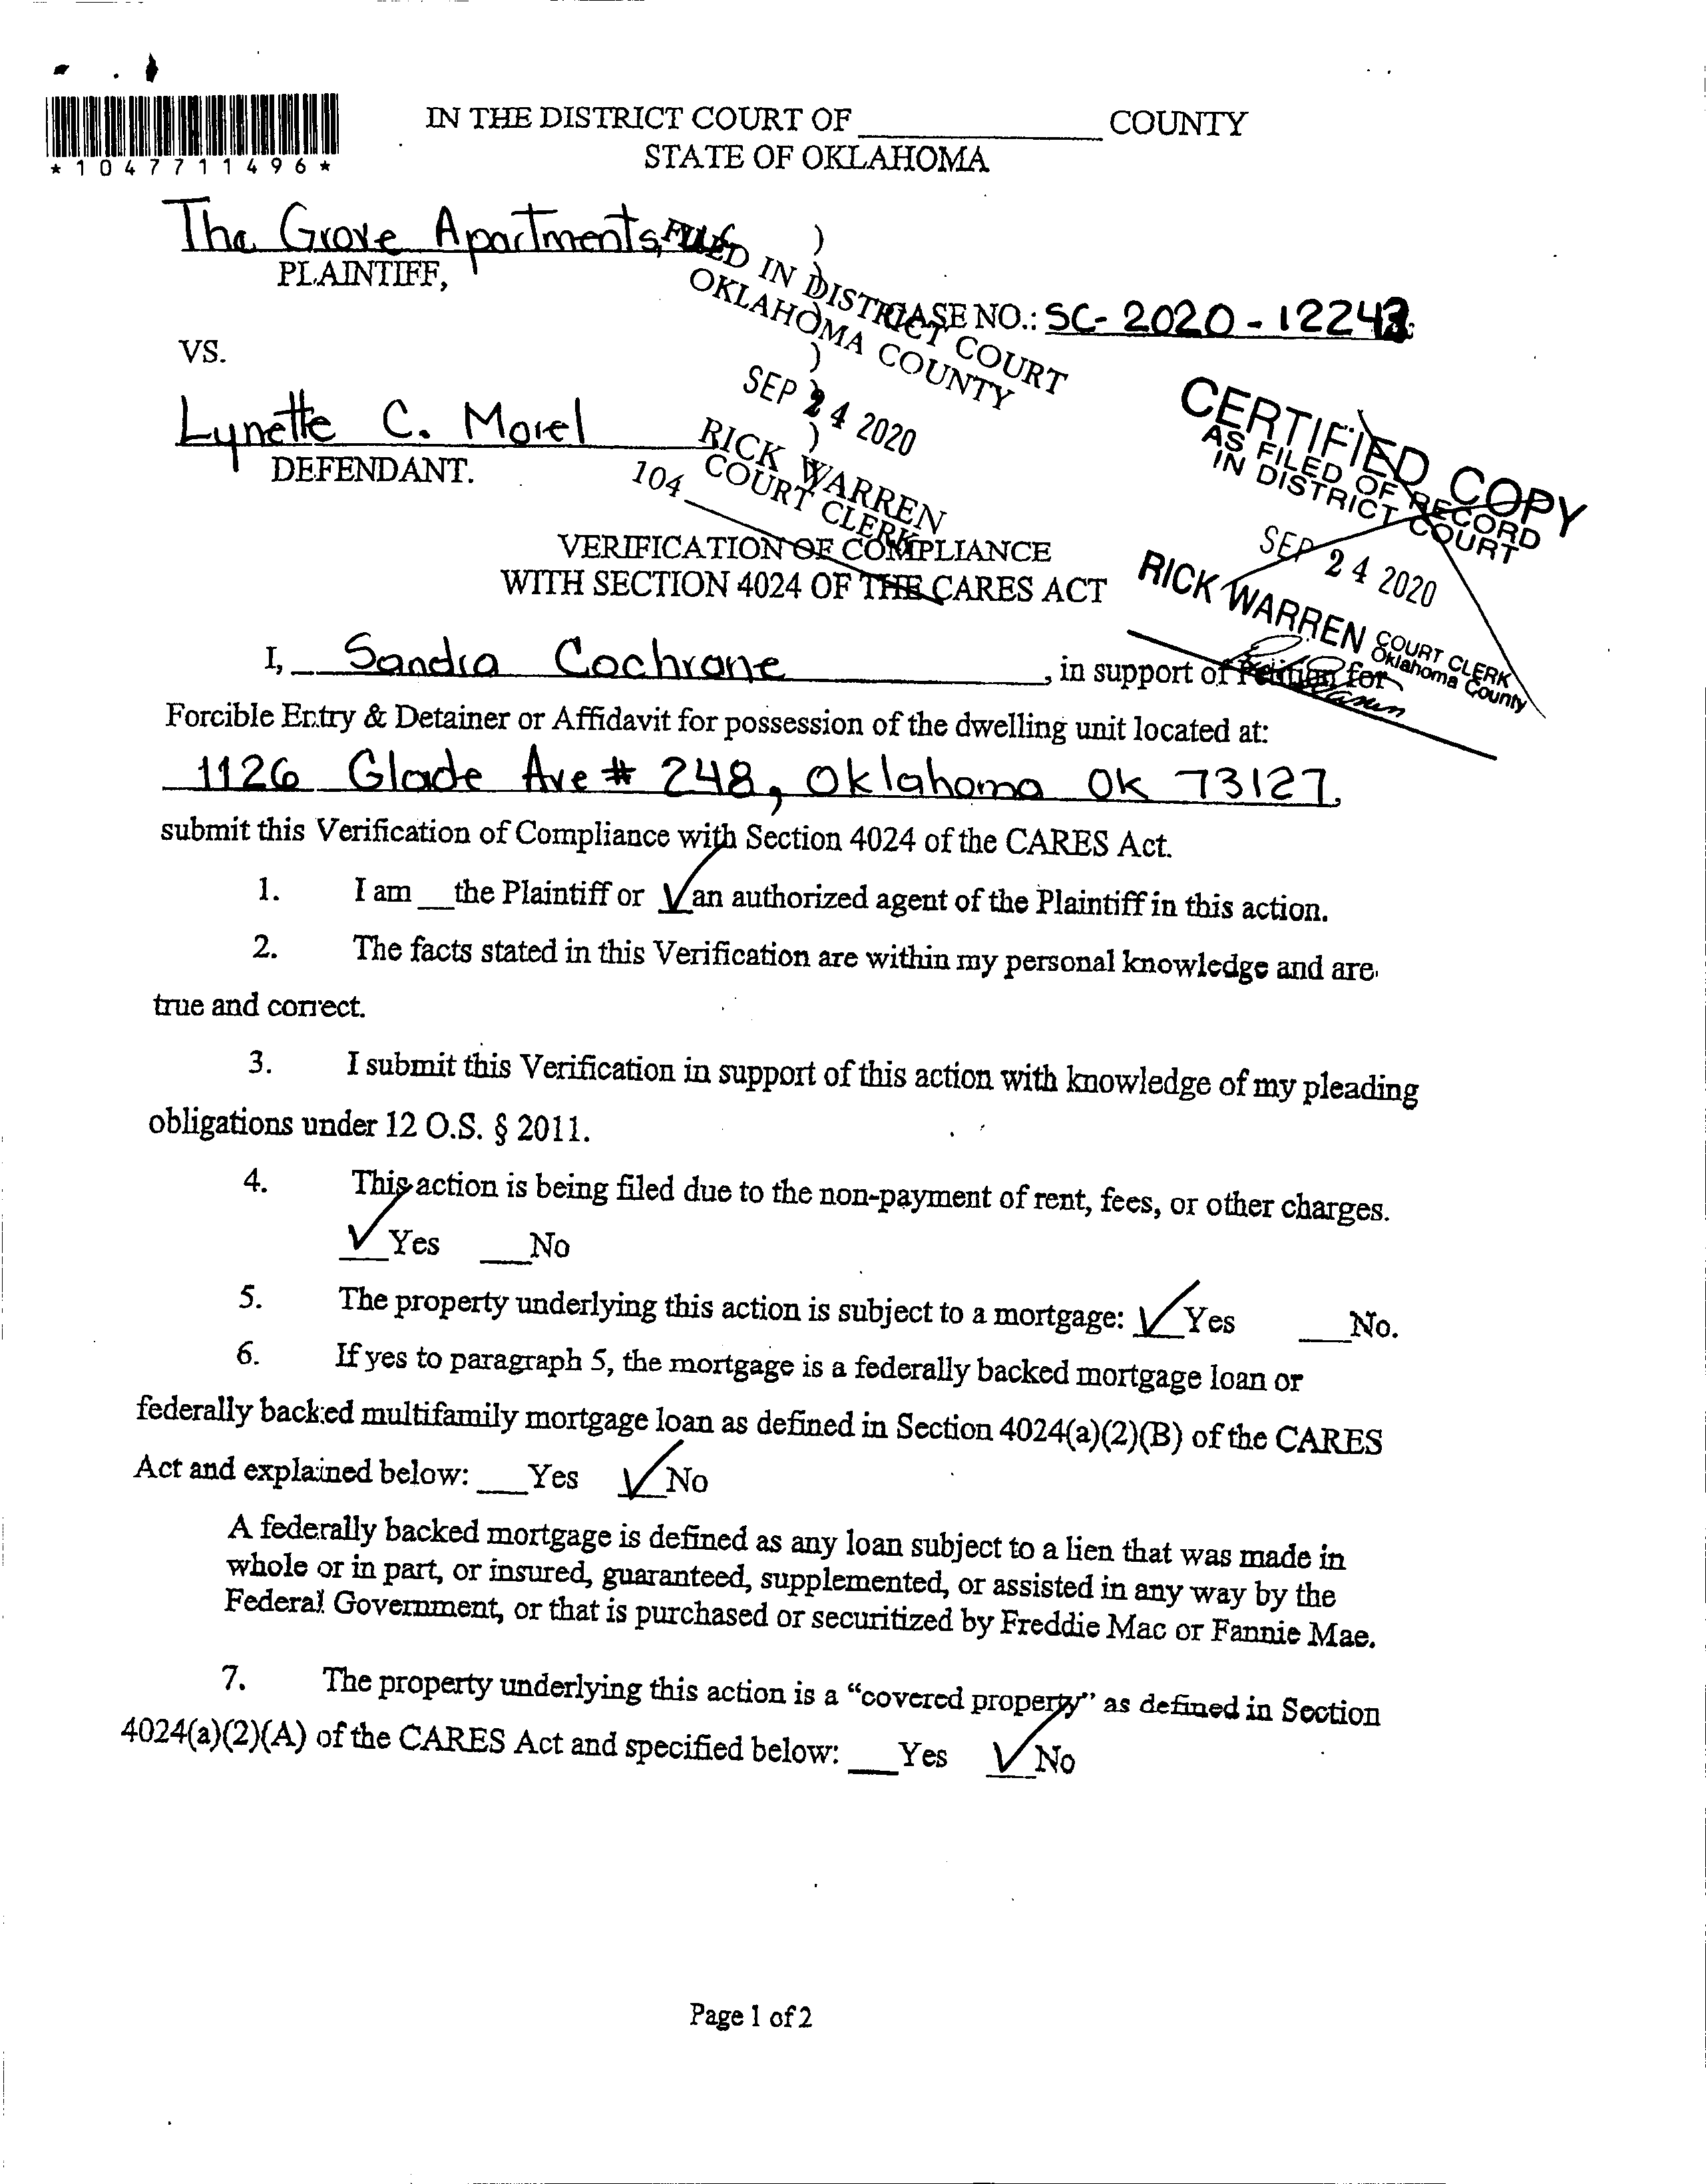 *1047711496*
IN THE DISTRICT COURT OF ____________ COUNTY
STATE OF OKLAHOMA
The Grove Apartments,
PLAINTIFF,
)
)
)
)
)
)
FILED IN DISTRICT COURT
OKLAHOMA COUNTY
SEP 24 2020
RICK WARREN
COURT CLERK
104
CASE NO.: SC-2020-12243
VS.
Lynette C. Morel
DEFENDANT.
CERTIFIED COPY
AS FILED OF RECORD
IN DISTRICT COURT
SEP 24 2020
RICK WARREN COURT CLERK
Oklahoma County
VERIFICATION OF COMPLIANCE
WITH SECTION 4024 OF THE CARES ACT
I, Sandra Cochrane, in support of Petition for
Forcible Entry & Detainer or Affidavit for possession of the dwelling unit located at:
1126 Glade Ave # 248, Oklahoma OK 73127,
submit this Verification of Compliance with Section 4024 of the CARES Act.
1. I am __the Plaintiff or ✓an authorized agent of the Plaintiff in this action.
2. The facts stated in this Verification are within my personal knowledge and are
true and correct.
3. I submit this Verification in support of this action with knowledge of my pleading
obligations under 12 O.S. § 2011.
4. This action is being filed due to the non-payment of rent, fees, or other charges.
✓Yes __No
5. The property underlying this action is subject to a mortgage: ✓Yes __No.
6. If yes to paragraph 5, the mortgage is a federally backed mortgage loan or
federally backed multifamily mortgage loan as defined in Section 4024(a)(2)(B) of the CARES
Act and explained below: __Yes ✓No
A federally backed mortgage is defined as any loan subject to a lien that was made in
whole or in part, or insured, guaranteed, supplemented, or assisted in any way by the
Federal Government, or that is purchased or securitized by Freddie Mac or Fannie Mae.
7. The property underlying this action is a “covered property” as defined in Section
4024(a)(2)(A) of the CARES Act and specified below: __Yes ✓No
Page 1 of 2